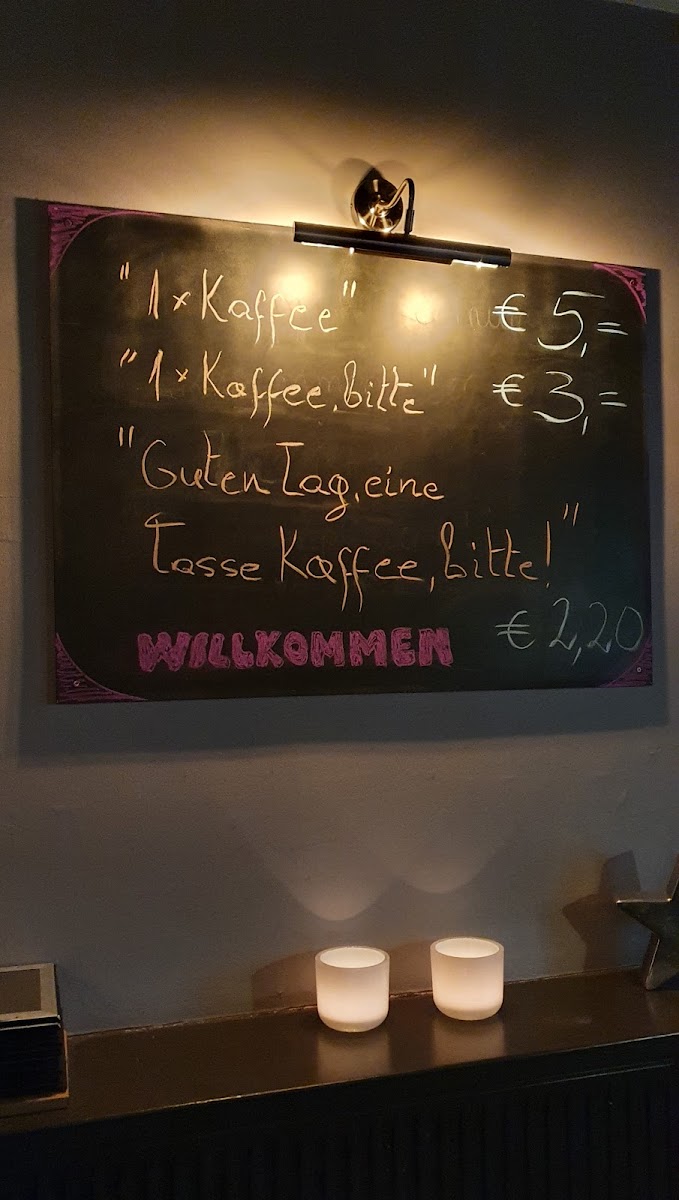 "1 x Kaffee" € 5,=
"1 x Kaffee, bitte" € 3,=
"Guten Tag, eine
Tasse Kaffee, bitte!"
WILLKOMMEN € 2,20